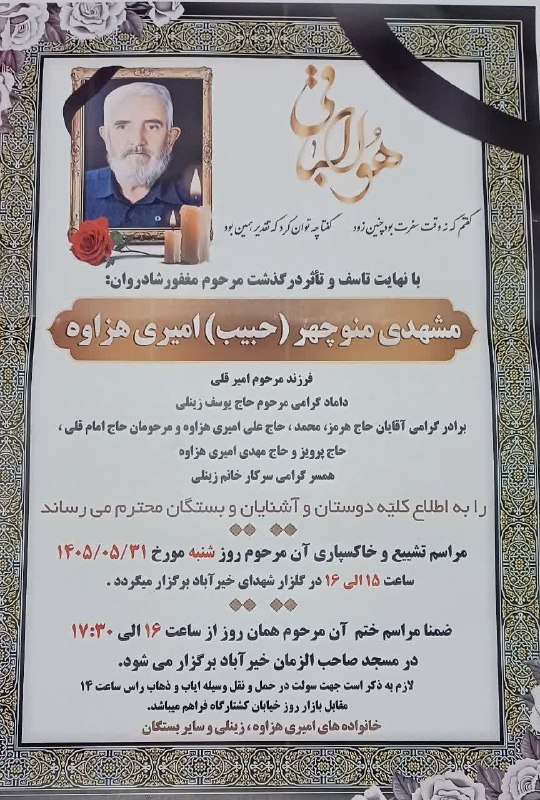 هوالباقی
گفتم که نه وقت سفرت بود چنین زود گفتا چه توان کرد که تقدیر همین بود
با نهایت تاسف و تأثر درگذشت مرحوم مغفور شادروان:
مشهدی منوچهر (حبیب) امیری هزاوه
فرزند مرحوم امیر قلی
داماد گرامی مرحوم حاج یوسف زینلی
برادر گرامی آقایان حاج هرمز، محمد ، حاج علی امیری هزاوه و مرحومان حاج امام قلی ،
حاج پرویز و حاج مهدی امیری هزاوه
همسر گرامی سرکار خانم زینلی
را به اطلاع کلیّه دوستان و آشنایان و بستگان محترم می رساند
مراسم تشییع و خاکسپاری آن مرحوم روز شنبه مورخ ۱۴۰۵/۰۵/۳۱
ساعت ۱۵ الی ۱۶ در گلزار شهدای خیرآباد برگزار میگردد .
ضمنا مراسم ختم آن مرحوم همان روز از ساعت ۱۶ الی ۱۷:۳۰
در مسجد صاحب الزمان خیرآباد برگزار می شود.
لازم به ذکر است جهت سولت در حمل و نقل وسیله ایاب و ذهاب راس ساعت ۱۴
مقابل بازار روز خیابان کشتارگاه فراهم میباشد.
خانواده های امیری هزاوه ، زینلی و سایر بستگان